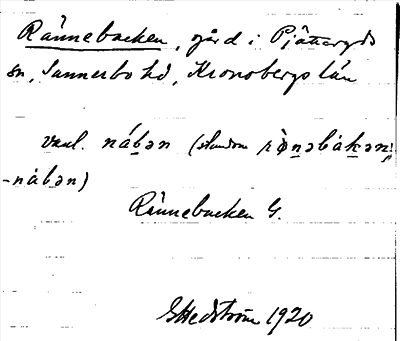 Rännebacken, gård i Pjätteryds
sn, Sunnerbo hd, Kronobergs län
vanl. nábən (stundom
-nàbən)
Rännebacken G.
GHedström 1920